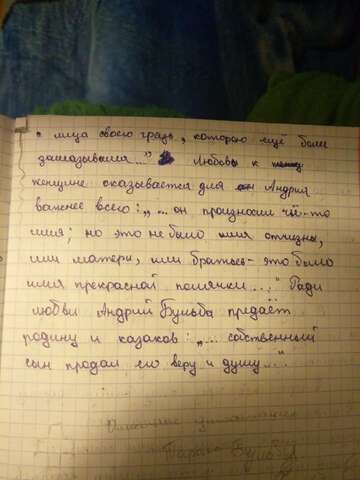 с лица своего грязь, которою ещё более
замазывала..." Любовь к
женщине оказывается для Андрия
важнее всего: „... он произносил чьё-то
имя; но это не было имя отчизны,
или матери, или братьев - это было
имя прекрасной полячки..." Ради
любви Андрий Бульба предаёт
родину и казаков: „... собственный
сын продал его веру и душу..."
Тарас Бульба